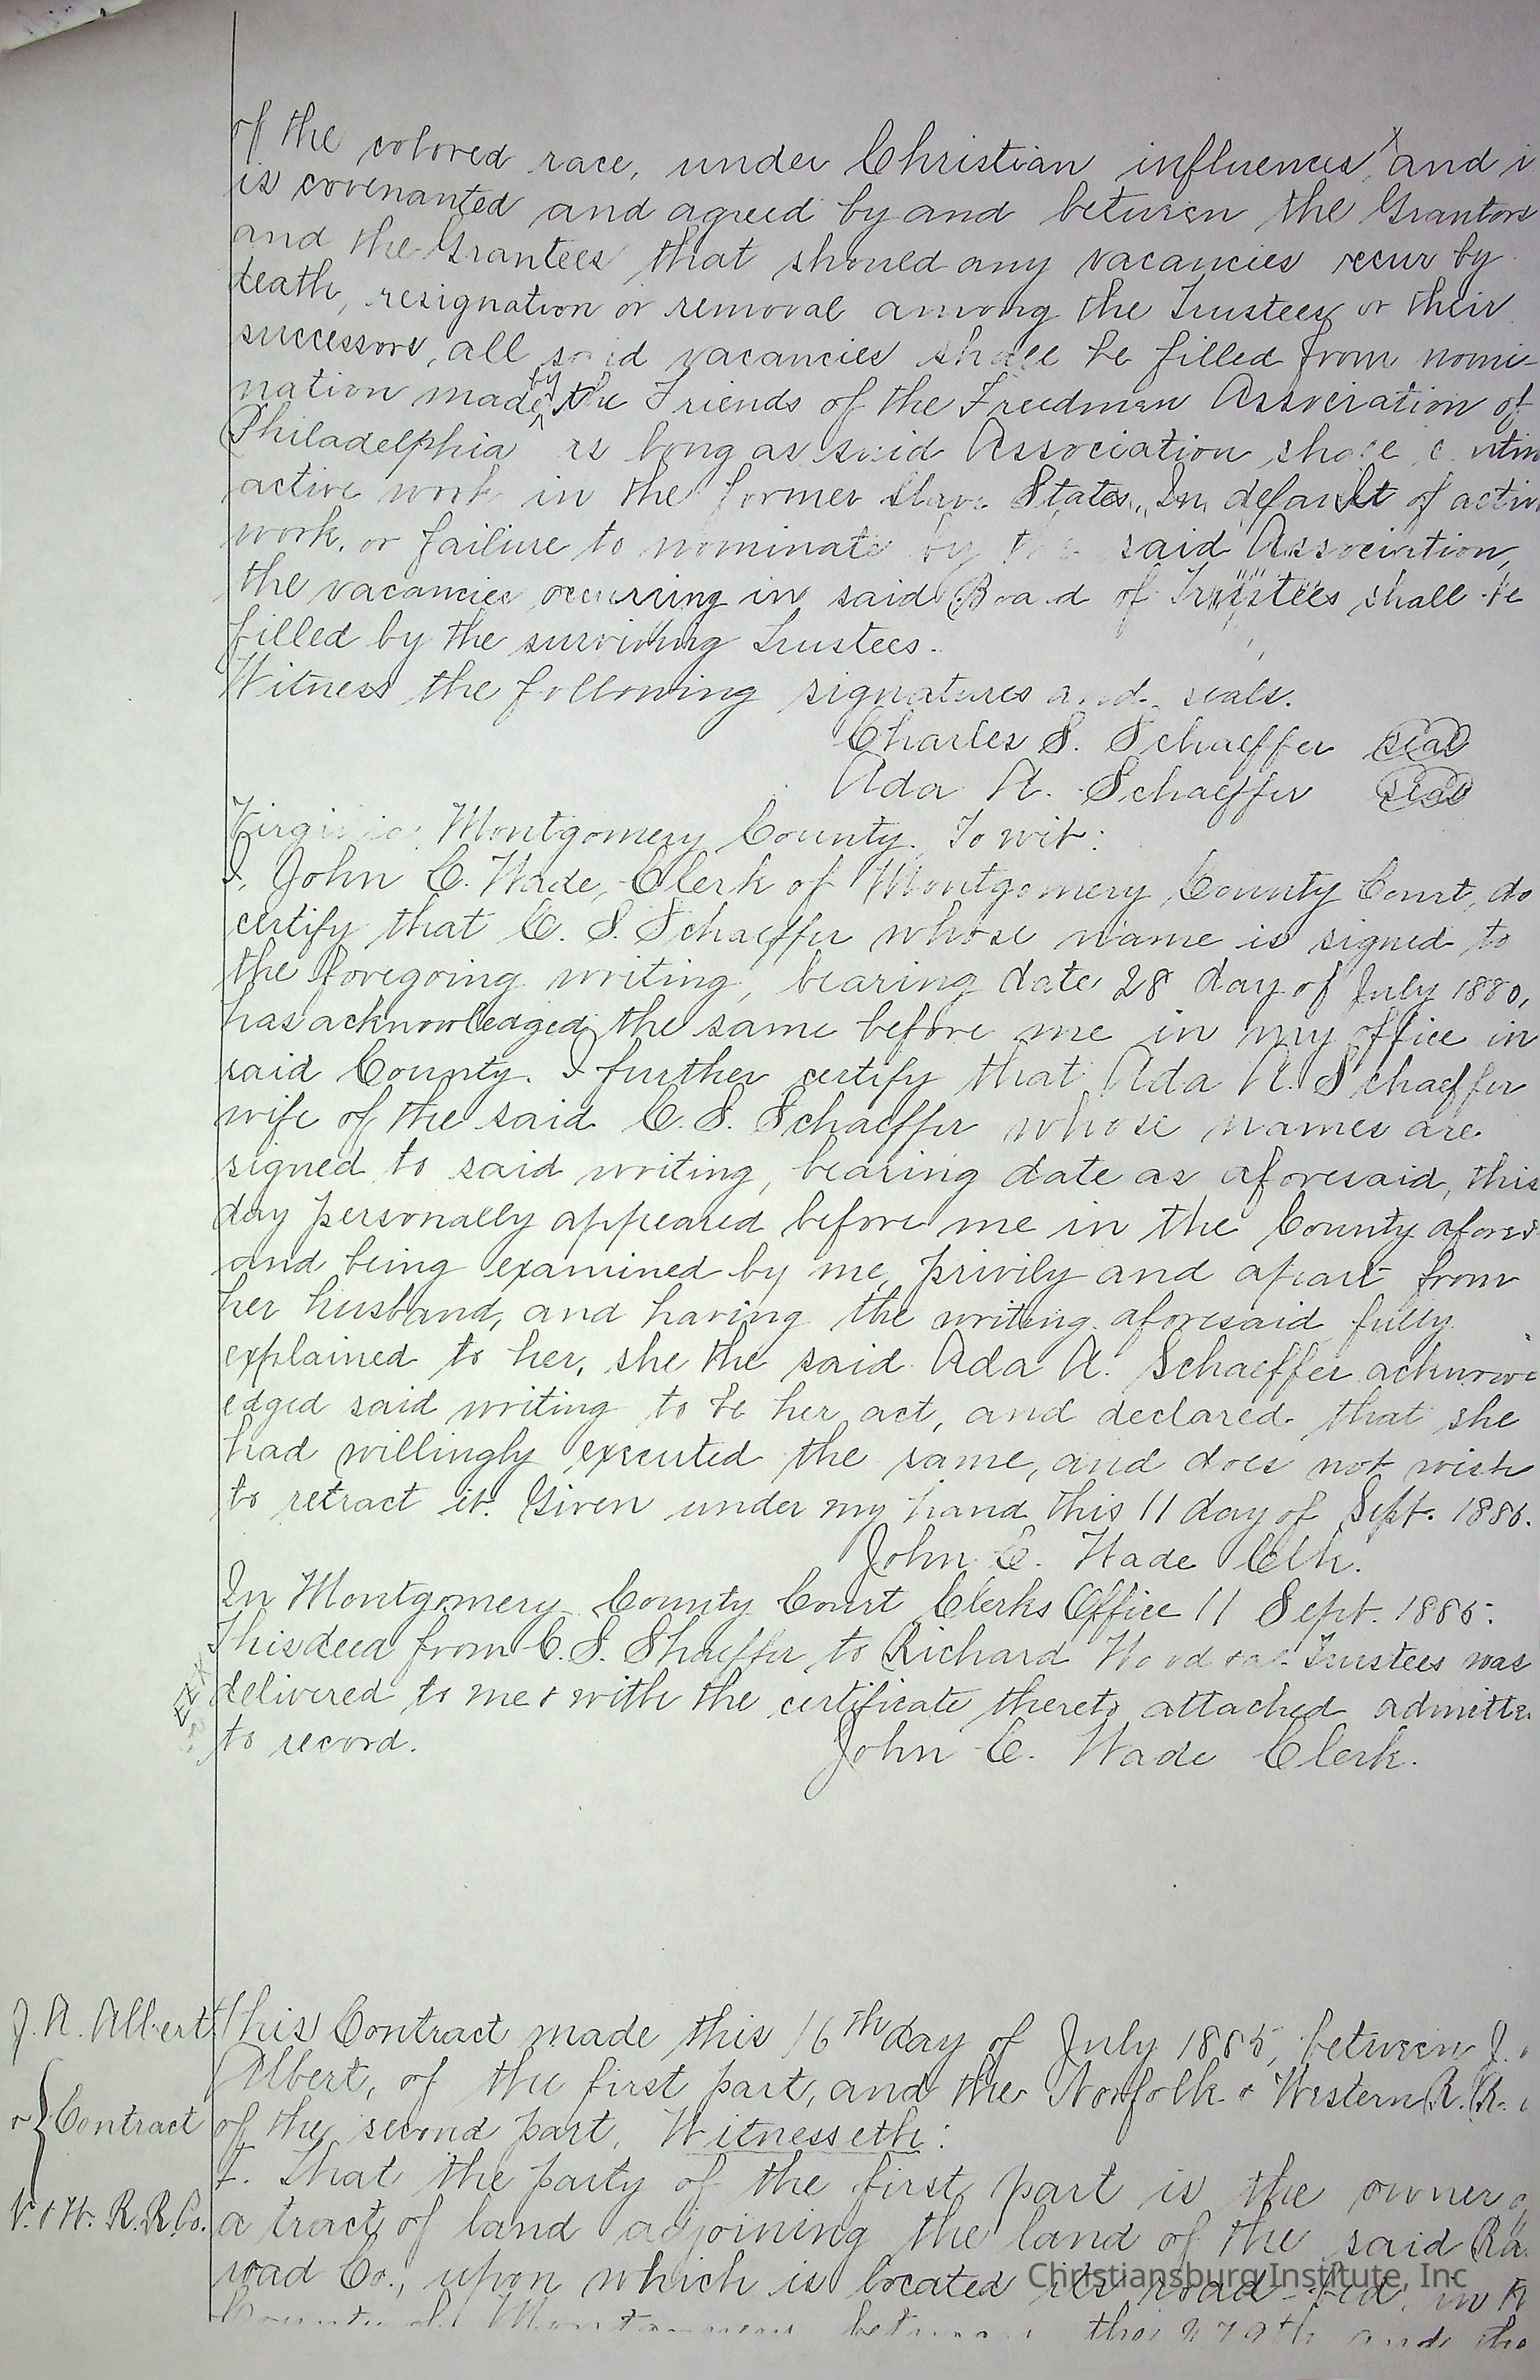 of the colored race, under Christian influences, and
is covenanted and agreed by and between the Grantors
and the Grantees that should any vacancies occur by
death, resignation or removal among the Trustees or their
successors, all said vacancies shall be filled from nomi-
nation made by the Friends of the Freedmen Association of
Philadelphia as long as said Association shall
active work in the former Slave States, In default of
work, or failure to nominate by the said Association,
the vacancies occurring in said Board of Trustees shall be
filled by the surviving Trustees.
Witness the following signatures and seals.
Charles S. Schaeffer seal
Ada A. Schaeffer seal
Virginia, Montgomery County. To wit:
I, John C. Wade, Clerk of Montgomery County Court, do
certify that C. S. Schaeffer whose name is signed to
the foregoing writing, bearing date 28 day of July
has acknowledged the same before me in my office in
said County. I further certify that Ada A. Schaeffer
wife of the said C. S. Schaeffer whose names are
signed to said writing, bearing date as aforesaid, this
day personally appeared before me in the County
and being examined by me, privily and apart from
her husband, and having the writing aforesaid fully
explained to her, she the said Ada A. Schaeffer
edged said writing to be her act, and declared that she
had willingly executed the same, and does not wish
to retract it. Given under my hand this 11 day of Sept.
John C. Wade Clk.
In Montgomery County Court Clerks Office 11 Sept. 1885.
This deed from C. S. Shaeffer to Richard Trustees was
delivered to me & with the certificate thereto attached
to record. John C. Wade Clerk.
J. A. Albert
This Contract made this 16th day of July 1885, between J.
Albert, of the first part, and the Norfolk & Western R. R.
& Contract
of the second part, Witnesseth:
I. That the party of the first part is the owner
N. & W. R. R. Co.
a tract of land adjoining the land of the said
road Co., upon which is located its road-bed, in
between the 279th and the
Christiansburg Institute, Inc